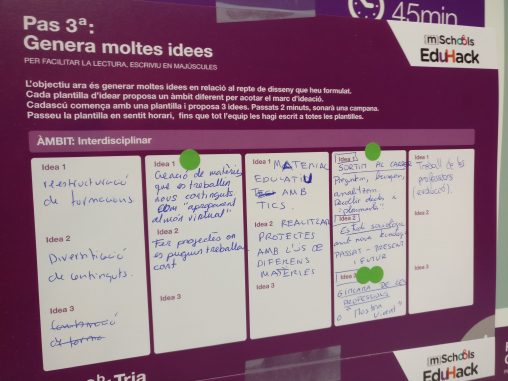 45min
Pas 3ª:
Genera moltes idees
PER FACILITAR LA LECTURA, ESCRIVIU EN MAJÚSCULES
[m]Schools
EduHack
L'objectiu ara és generar moltes idees en relació al repte de disseny que heu formulat.
Cada plantilla d'idear proposa un àmbit diferent per acotar el marc d'ideació.
Cadascú comença amb una plantilla i proposa 3 idees. Passats 2 minuts, sonarà una campana.
Passeu la plantilla en sentit horari, fins que tot l'equip les hagi escrit a totes les plantilles.
ÀMBIT: Interdisciplinar
Idea 1
reestructuració
de
Idea 2
Diversificació
de continguts.
Idea 3
Idea 1
Creació de matèries
que es treballen
nous continguts
"apropament
al món virtual"
Idea 2
Fer projectes on
es puguin treballar
Idea 3
Idea 1
MATERIAL
EDUCATIU
AMB
TICS.
Idea 2
REALITZAR
PROJECTES
AMB L'ÚS DE
DIFERENS
MATÈRIES
Idea 3
Idea 1
SORTIM AL CARRER
Preguntem, busquem,
analitzem.
Idea 2
Estudi sociològic
amb noves
PASSAT - PRESENT
I FUTUR
Idea 3
GIMCANA DE LES
PROFESSIONS
o "Mostra
Idea 1
Treball de les
professions
Idea 2
Idea 3
[m]Schools
EduHack
Tria